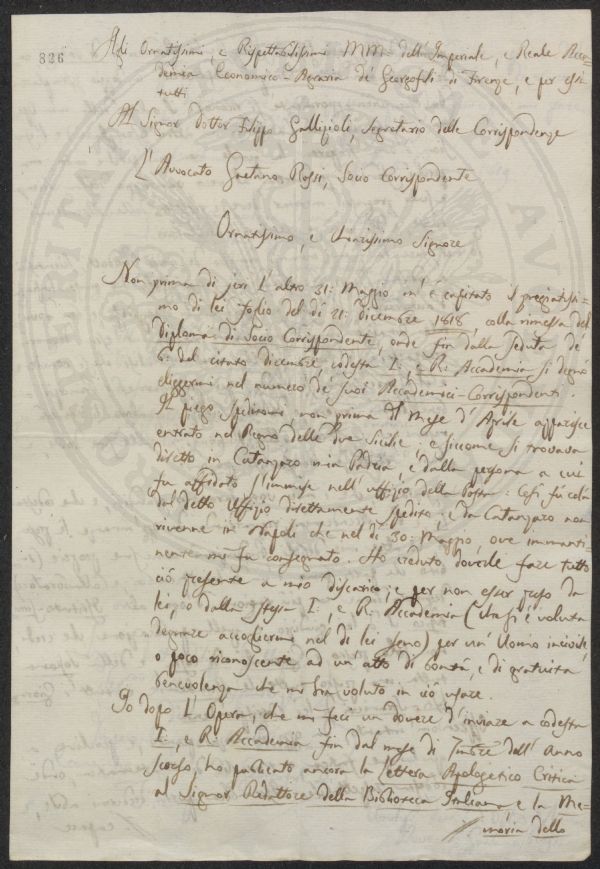 826
Agli Ornatissimi e Rispettabilissimi MM: dell'Imperiale, e Reale Acca-
demia Economico-Agraria de' Georgofili di Firenze, e per essi
tutti
Al Signor Dottor Filippo Gallizioli, Segretario delle Corrispondenze
L'Avvocato Gaetano Rossi, Socio Corrispondente
Ornatissimo, e Chiarissimo Signore
Non prima di jeri l'altro 31: Maggio m'è capitato il pregiatissi-
mo di lei foglio del dì 21: dicembre 1818, colla rimessa del
Diploma di Socio Corrispondente, onde fin dalla seduta de'
6 del citato dicembre codesta I: e R: Accademia si degnò
eliggermi nel numero de' suoi Accademici-Corrispondenti.
Il piego speditomi non prima del Mese d'Aprile apparisce
entrato nel Regno delle due Sicilie, e siccome si trovava
diretto in Catanzaro mia Padria, e dalla persona a cui
fu affidato s'immise nell'uffizio della Posta: Così fù colà
dal detto Uffizio direttamente spedito: e da Catanzaro non
rivenne in Napoli che nel dì 30: Maggio, ove immanti-
nente mi fu consegnato. Ho creduto doverle fare tutto
ciò presente a mio discarico, e per non esser preso da
lei, o dalla stessa I:, e R: Accademia (che si è voluta
degnare accogliermi nel di lei seno) per un' Uomo incivile,
o poco riconoscente ad un' atto di bontà, e di gratuita
benevolenza che mi ha voluto in ciò usare.
Io dopo l'Opera, che mi feci un dovere d'inviare a codesta
I:, e R: Accademia fin dal mese di dell'Anno
scorso, ho publicato ancora la Lettera Apologetico Critica
al Signor Redattore della Biblioteca Italiana e la Me-
moria dello